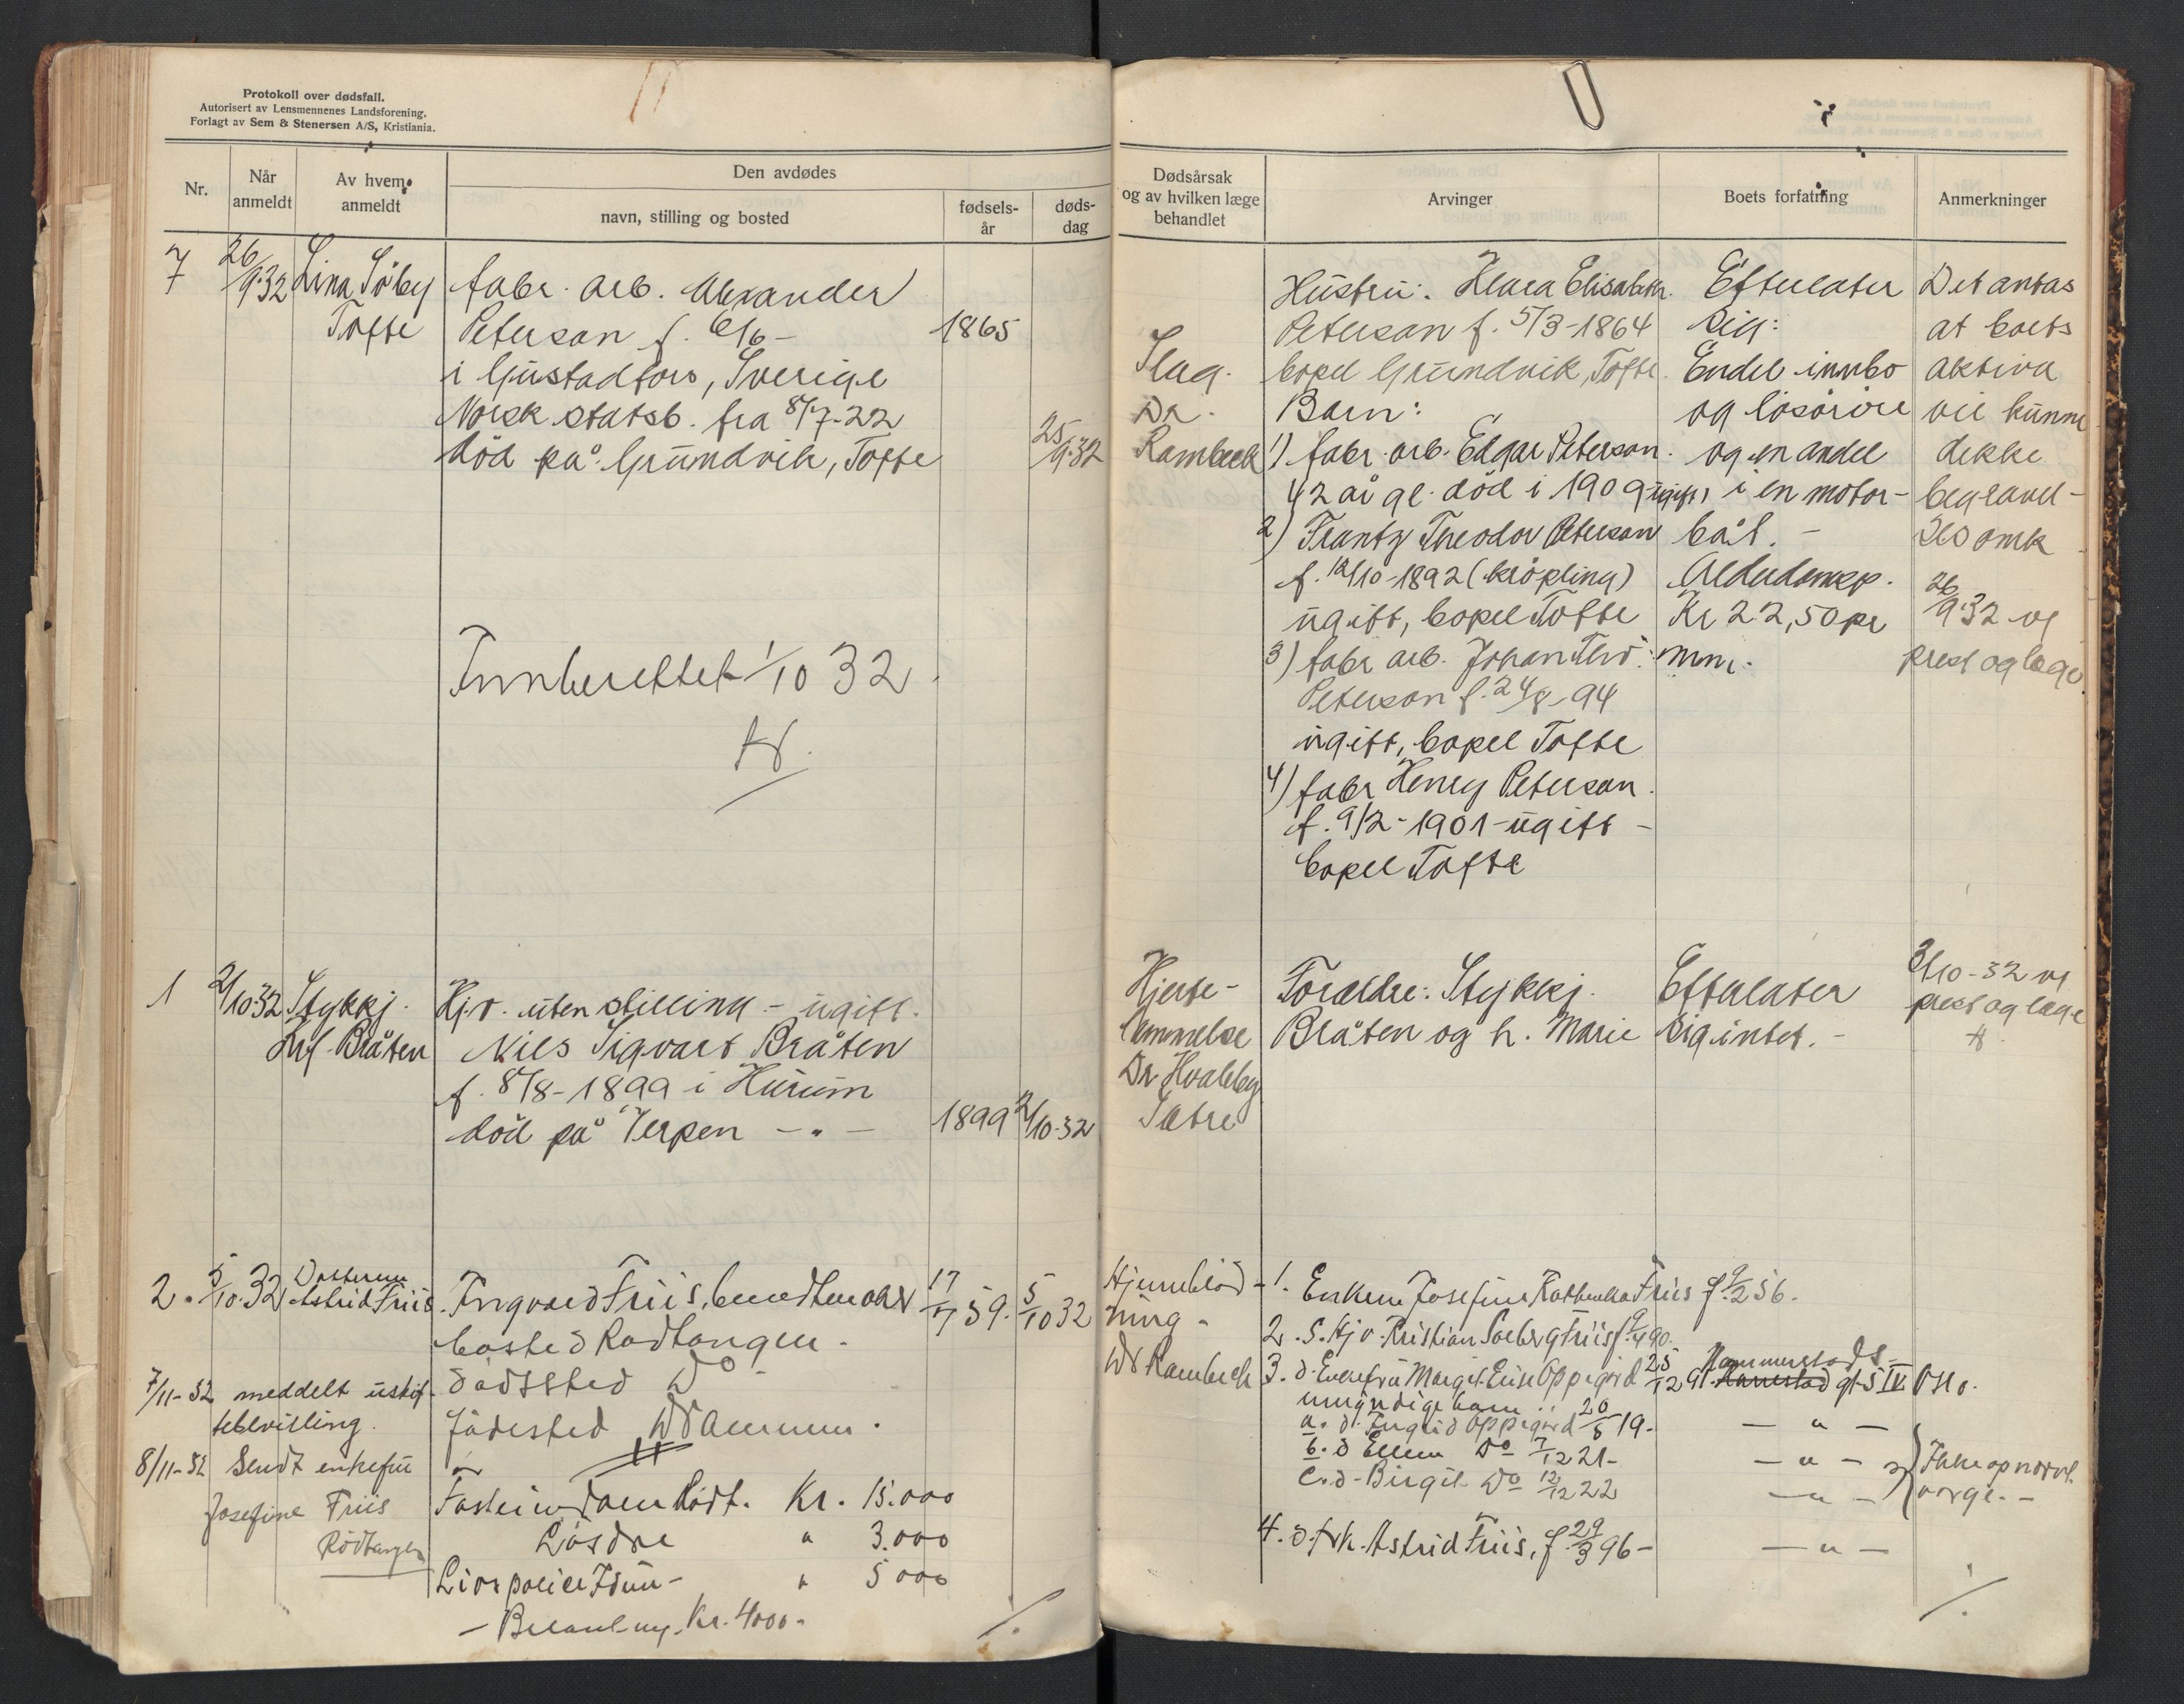 Protokoll over dødsfall.
Autorisert av Lensmennenes Landsforening.
Forlagt av Sem & Stenersen A/S, Kristiania.
Nr.
Når
anmeldt
Av hvem
anmeldt
Den avdødes
navn, stilling og bosted
fødsels-
år
døds-
dag
7
26/9.32
Lina Söby
Tofte
fabr. arb. Alexander
Peterson f. 6/6 -
1865
i Gustadfors, Sverige
Norsk statsb. fra 8/7-22
död på Grundvik, Tofte
25/9.32
Innberettet 1/10 32
1
2/10.32
Stykkj.
Bråten
Hj.v. uten stilling - ugift.
Nils Sigvart Bråten
f. 8/8-1899 i Hurum
död på Verpen - " -
1899
2/10.32
2.
5/10.32
Datteren
Astrid Friis
Ingvard Friis,
bosted Rödtangen.
dödssted Do -
födested Drammen.
17/7 59.
5/10 32
7/11-32 meddelt uskif-
tebevilling.
8/11-32 Sendt enkefru
Josefine Friis
Rödtangen
Fasteiendom Rödt. Kr. 15.000
Lösöre " 3.000
Livspolice Idun - " 5000
- Belåning. Kr. 4000.
%
Dødsårsak
og av hvilken læge
behandlet
Arvinger
Boets forfatning
Anmerkninger
Slag.
Dr.
Rambeck
Hustru: Klara Elisabeth.
Peterson f. 5/3-1864
bopel Grundvik, Tofte.
Barn:
1) fabr. arb. Edgar Peterson.
42 år gl. död i 1909 ugift,
2) Frantz Theodor Peterson
f. 12/10-1892 (krøpling)
ugift, bopel Tofte
3) fabr arb. Johan Thv.
Peterson f. 24/8-94
ugift, bopel Tofte
4) fabr Henry Peterson.
f. 9/2-1901-ugift -
bopel Tofte
Efterlater
sig:
Endel innbo
og lösöre
og en andel
i en motor-
båt. -
Alderdomsp.
Kr 22,50 pr
mnr.
Det antas
at boets
aktiva
vil kunne
dekke
begravel-
ses omk
26/9.32
prest og læge
Hjerte-
lammelse
Dr Hvalby
Sætre
Forældre: Stykkj.
Bråten og h. Marie
Efterlater
sig intet. -
3/10-32
prest og læge
Hjerneblöd-
ning -
Dr Rambeck
1. Enken Josefine Friis f. 9/2 56.
2. S. Hj v. Kristian Friis f. 9/4 90.
3. d. Enkefru Margit Elise Oppegård 25/12 91. Hammerstads-
Harrestad gt. 5 IV Oslo.
umyndige barn:
a. d. Ingrid Oppegård 20/5 19. - " -
b. d Ellen Do 7/12 21- - " -
c. d- Birgit Do 12/12 22 - " -
Ikke opnevnt
verge. -
4. d. frk. Astrid Friis, f. 29/3 96- - " -
%